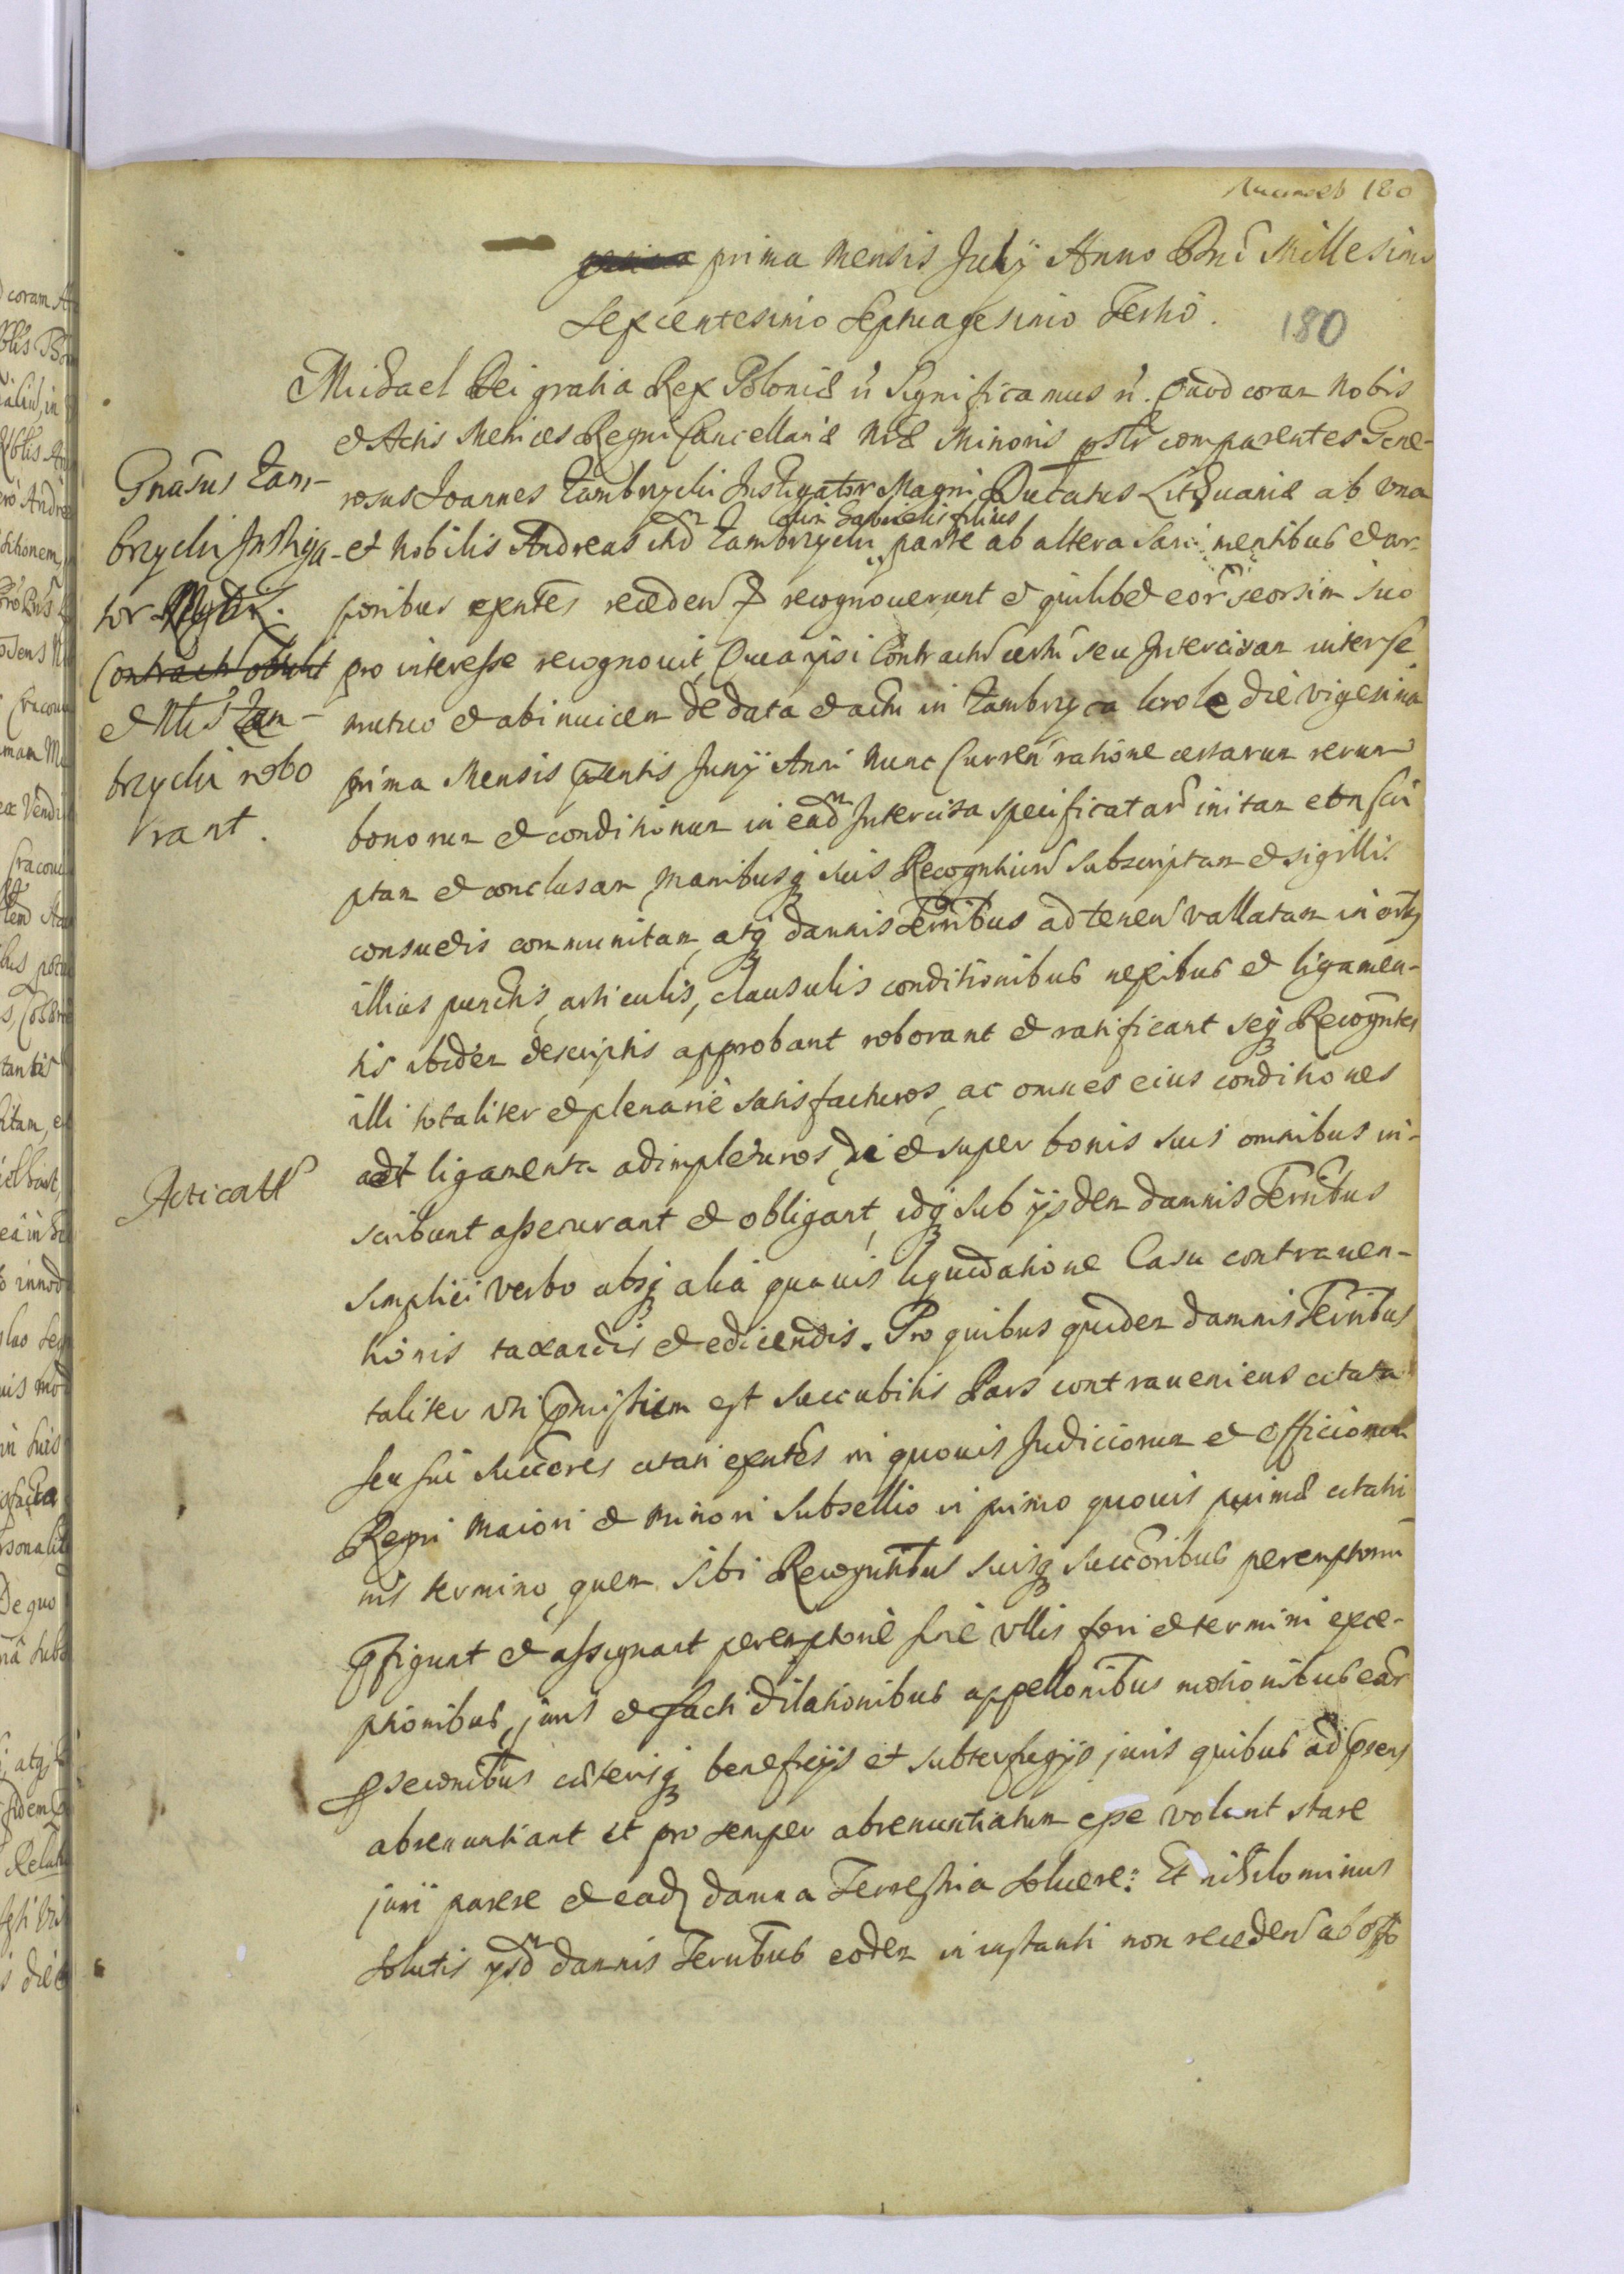 180
prima Mensis July Anno Dni Millesimo
Sexcentesimo Septuagesimo Tertio.
180
Michael Dei gratia Rex Poloniæ Significamus Quod coram Nobis
et Actis Metrices Regni Cancellariæ Nræ Minoris comparentes Gene-
rosus Joannes Zambrzycki Instigator Magni Ducatus Lithuaniæ ab una
olim Gabrielis filius
et Nobilis Andreas itid Zambrzycki parte ab altera Sani mentibus et cor-
poribus exntes recogno̅uerunt et quilibet eor seorsim suo
pro interesse recognovit, Quia ipsi Contractu certu seu Intercisam inter se
mutuo et ab inuicem de data et actu in Zambrzyca Krole die vigesima
prima Mensis Juny Anni Nunc Curren ratione certarum rerum
bonorum et conditionum in ead Intercisa specificatar initam
ptam et conclusam, manibusq suis Recognitium subscriptam et sigillis
consuetis communitam, atq damnis Terribus ad tenen vallatam in
illius punctis, articulis, clausulis conditionibus nexibus et ligamen-
tis ibidem descriptis approbant roborant et ratificant seq Recogntes
illi totaliter et plenarie satisfacturos, ac omnes eius conditiones
act ligamenta adimpleturos, in et super bonis suis omnibus in-
scribunt assecurant et obligant, idq sub ijsdem damnis Terribus
simplici verbo absq alia quauis liquidatione Casu contrauen-
tionis taxandis et edicendis. Pro quibus quidem damnis Terribus
taliter uti pmissum est succubitis Pars contraueniens citata
seu sui succores citati exntes in quouis Judiciorum et Officiorum
Regni maiori et minori Subsellio in primo quouis primæ citatio
nis termino, quem sibi Recogntibus suisq succoribus peremptorium
pfigunt et assignant peremptorie sine vllis fori et termini exce-
ptionibus, juris et facti dilationibus appellonibus motionibus ear
psecunibus cæterisq beneficijs et subterfugijs juris quibus ad psens
abrenuntiant et pro semper abrenuntiatum esse volunt stare
juri parere et eadem damna Terrestria soluere: Et nihilominus
solutis ijsd damnis Terribus eodem in instanti non receden ab offo
Gnasus Zam-
brzycki Instiga-
tor
Contract
et Nblis Zam-
brzycki robo
rant.
Acticatt